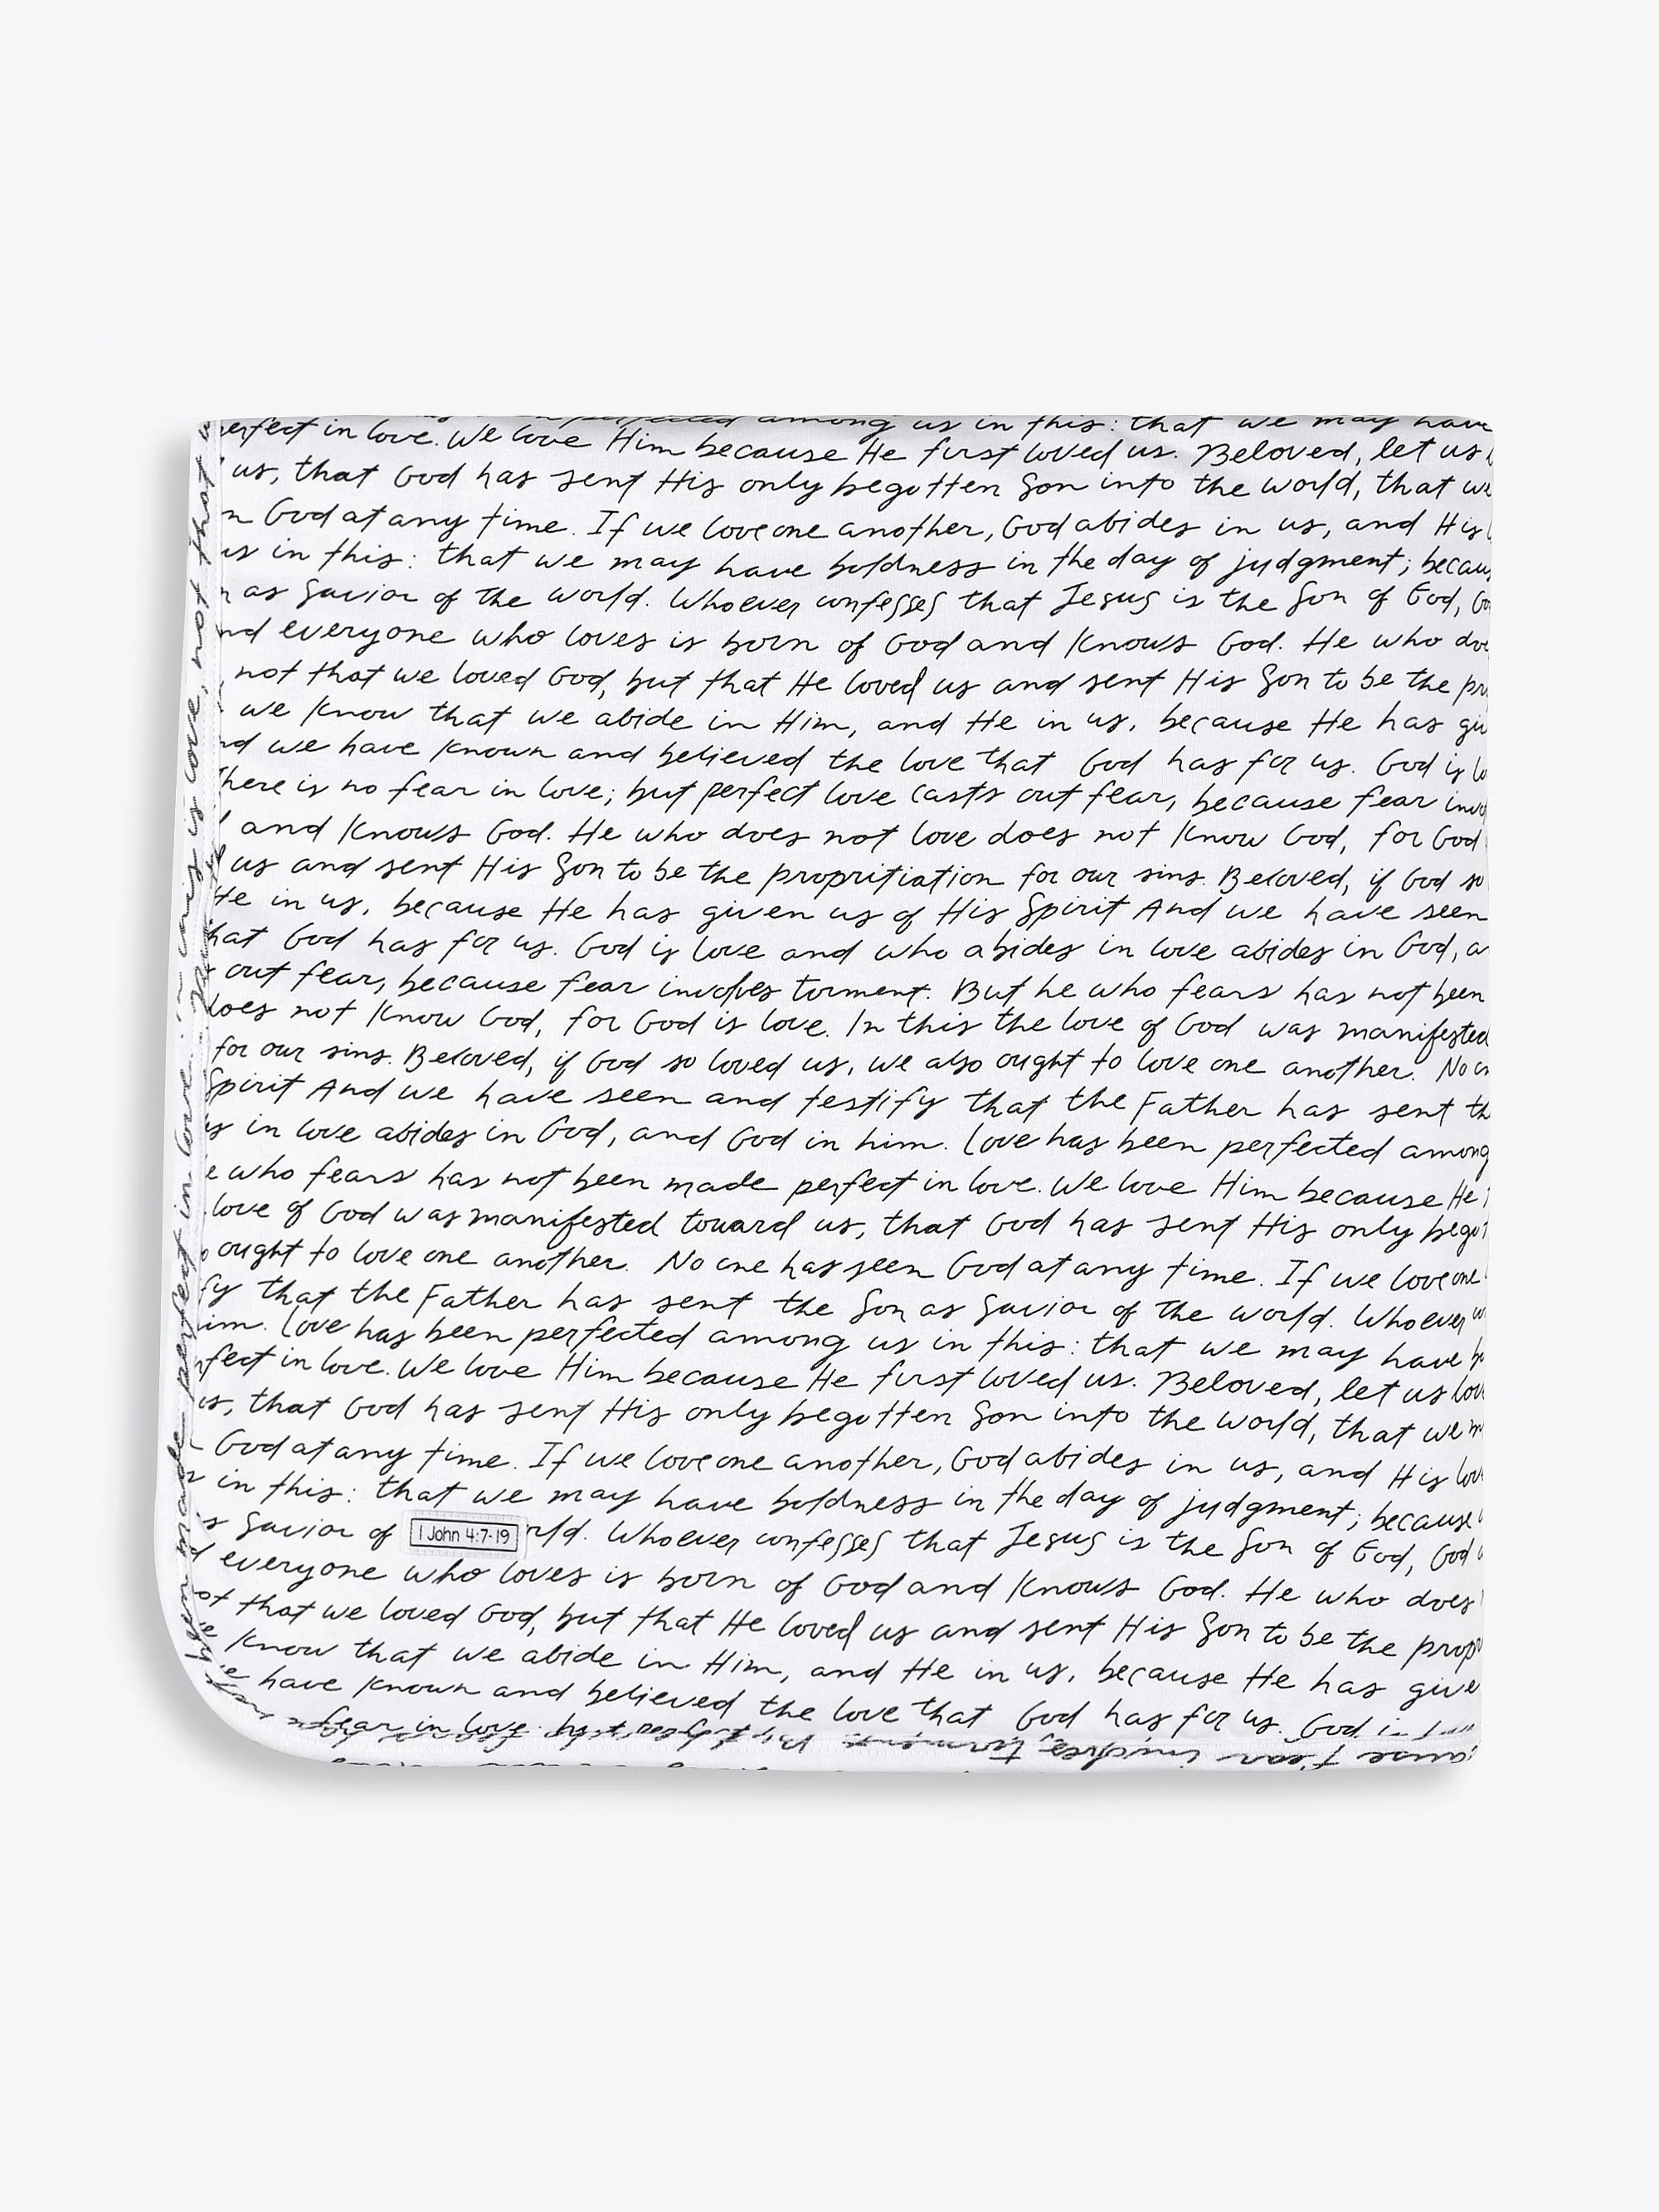 among us in this: that we may have
in love. We love Him because He first loved us. Beloved, let us
us, that God has sent His only begotten Son into the world, that
God at any time. If we love one another, God abides in us, and His
in this: that we may have boldness in the day of judgment;
as Savior of the world. Whoever confesses that Jesus is the Son of God,
everyone who loves is born of God and knows God. He who
not that we loved God, but that He loved us and sent His Son to be the
we know that we abide in Him, and He in us, because He has
we have known and believed the love that God has for us. God is
here is no fear in love; but perfect love casts out fear, because fear
and knows God. He who does not love does not know God, for God
us and sent His Son to be the propritiation for our sins. Beloved, if God so
He in us, because He has given us of His Spirit And we have seen
hat God has for us. God is love and who abides in love abides in God, a
out fear, because fear involves torment. But he who fears has not been
does not know God, for God is love. In this the love of God was manifested
for our sins. Beloved, if God so loved us, we also ought to love one another. No
Spirit And we have seen and testify that the Father has sent th
in love abides in God, and God in him. Love has been perfected among
e who fears has not been made perfect in love. We love Him because He
love of God was manifested toward us, that God has sent His only
ought to love one another. No one has seen God at any time. If we love one
fy that the Father has sent the Son as Savior of the world. Whoever
im. Love has been perfected among us in this: that we may have
fect in love. We love Him because He first loved us. Beloved, let us
us, that God has sent His only begotten Son into the world, that we
God at any time. If we love one another, God abides in us, and His
in this: that we may have boldness in the day of judgment; because
Savior of
1 John 4:7-19
rld. Whoever confesses that Jesus is the Son of God, God
everyone who loves is born of God and knows God. He who does
that we loved God, but that He loved us and sent His Son to be the
know that we abide in Him, and He in us, because He has give
have known and believed the love that God has for us. God
fear in love
been made perfect in love
is love, not that